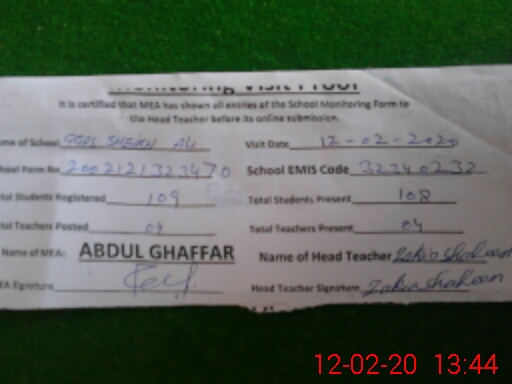 Monitoring Visit Proof
It is certified that MEA has shown all entries of the School Monitoring Form to
the Head Teacher before its online submission.
me of School GGPS SHEIKH ALI Visit Date 12-02-2020
hool Form No 2002121323470 School EMIS Code 32340232
tal Students Registered 109 Total Students Present 108
tal Teachers Posted 04 Total Teachers Present 04
Name of MEA: ABDUL GHAFFAR Name of Head Teacher Zakia shaheen
EA Signature Head Teacher Signature Zakia shaheen
12-02-20 13:44